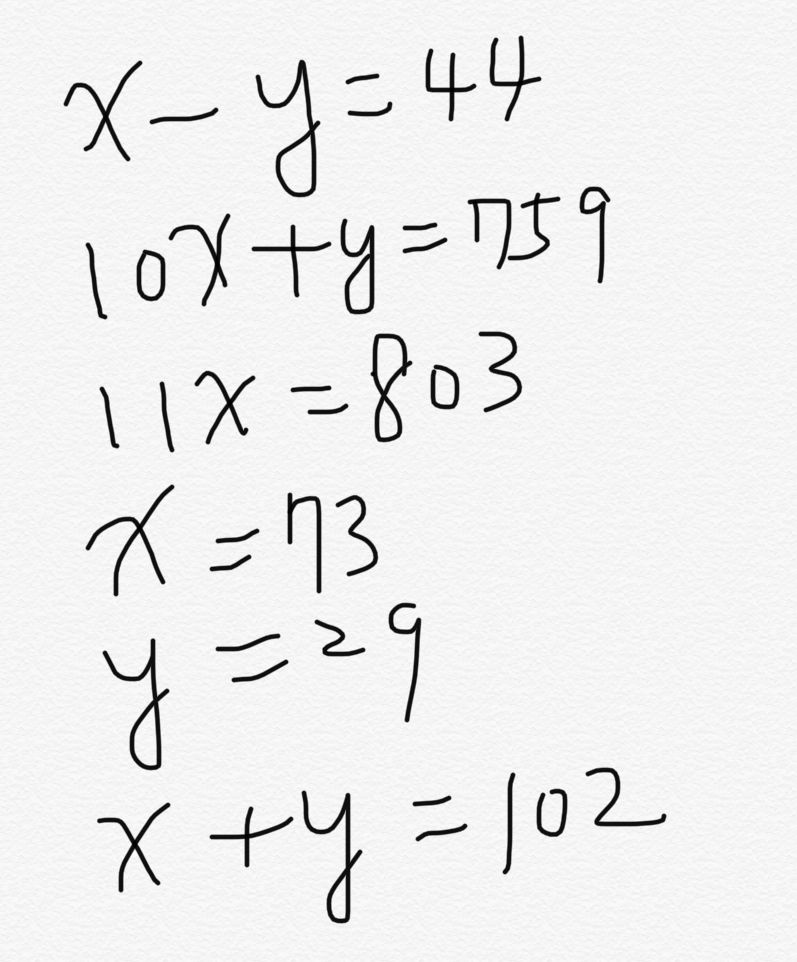 x - y = 44
10x + y = 759
11x = 803
x = 73
y = 29
x + y = 102